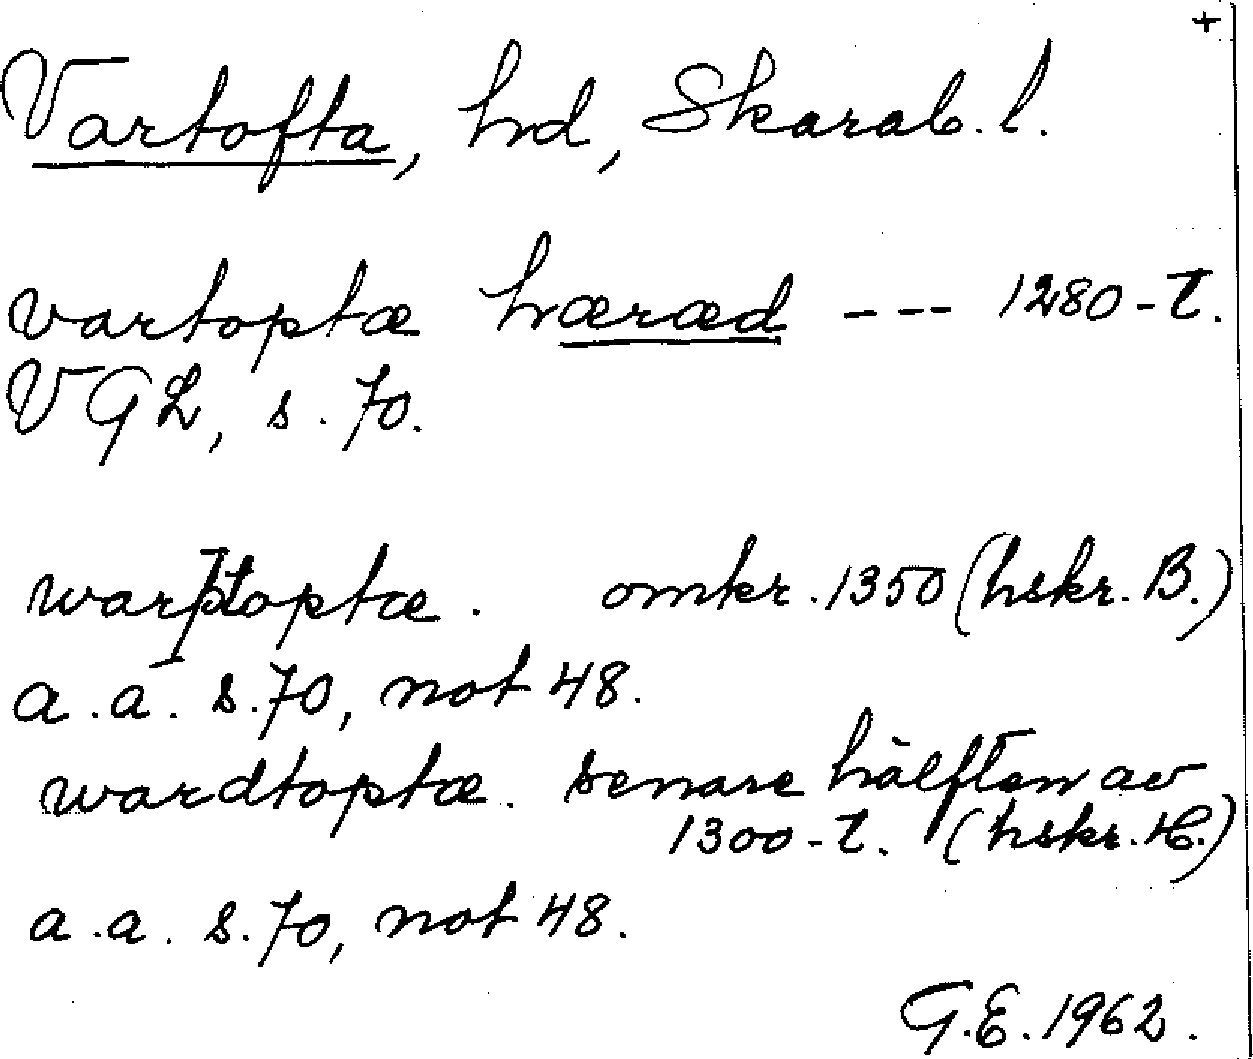 +
Vartofta, hd, Skarab. l.
vartoptæ hæræd --- 1280-t.
VGL, s. 70.
warþtoptæ. omkr. 1350 (hskr. B.)
a.a. s. 70, not 48.
wardtoptæ. senare hälften av
1300-t. (hskr. H.)
a.a. s. 70, not 48.
G.E. 1962.